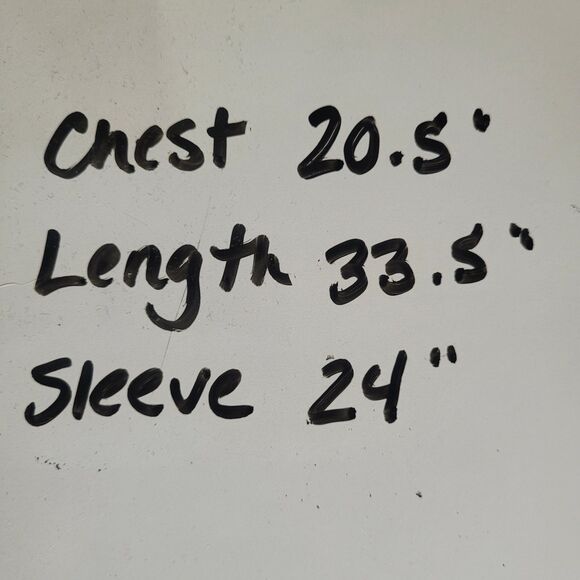 Chest 20.5"
Length 33.5"
Sleeve 24"